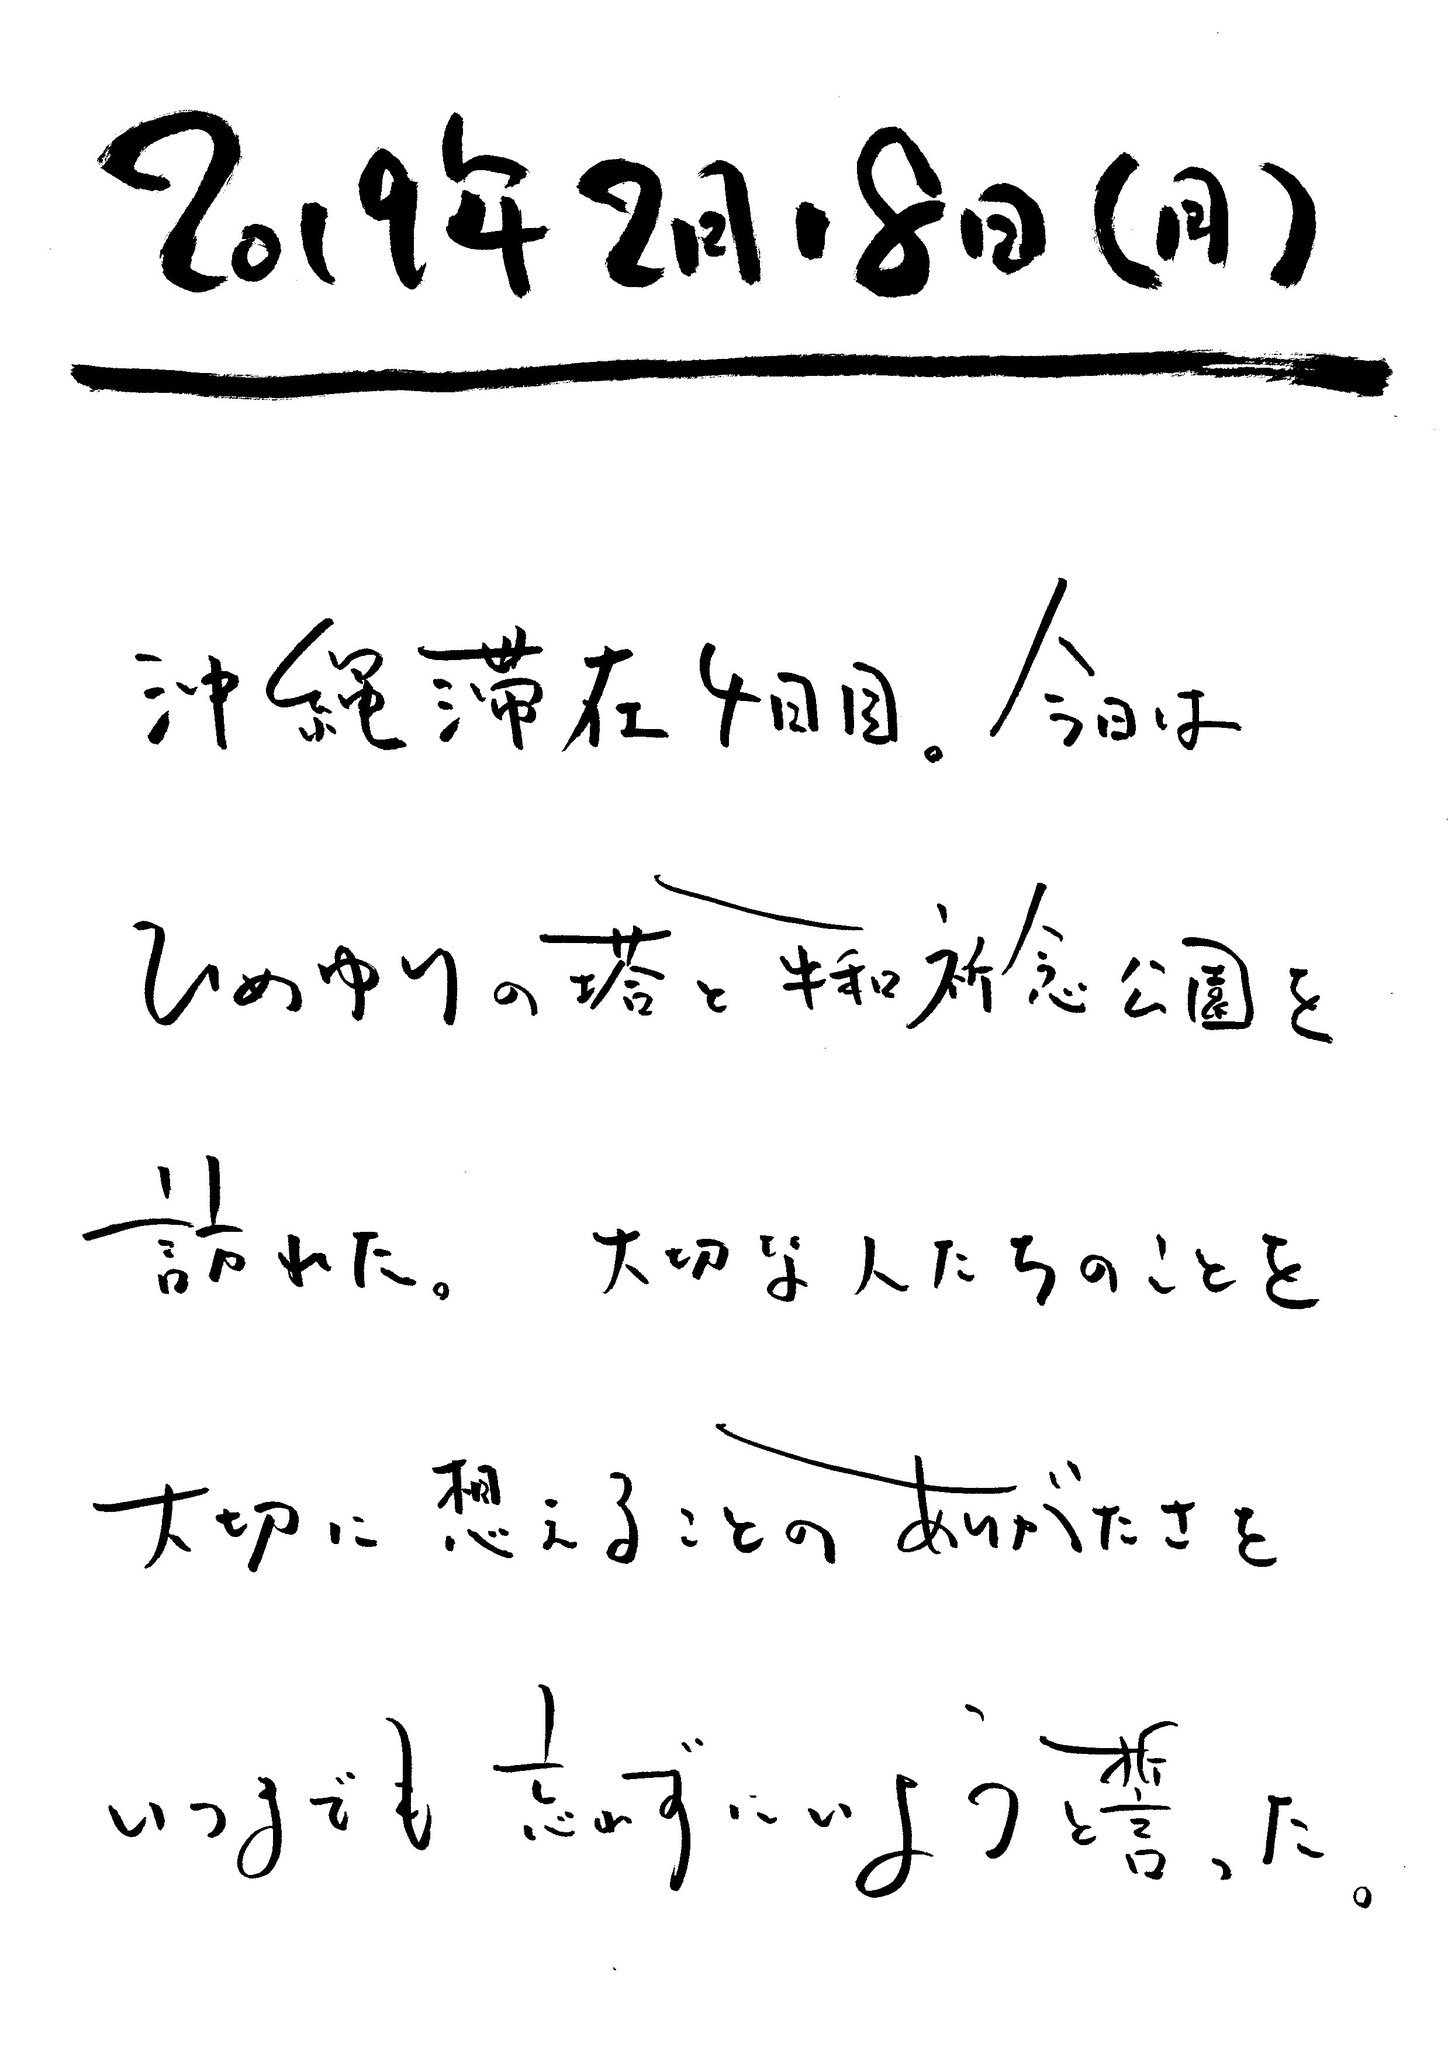 2019年2月18日(月)
沖縄滞在4日目。今日は
ひめゆりの塔と平和祈念公園を
訪れた。 大切な人たちのことを
大切に想えることのありがたさを
いつまでも忘れずにいようと誓った。